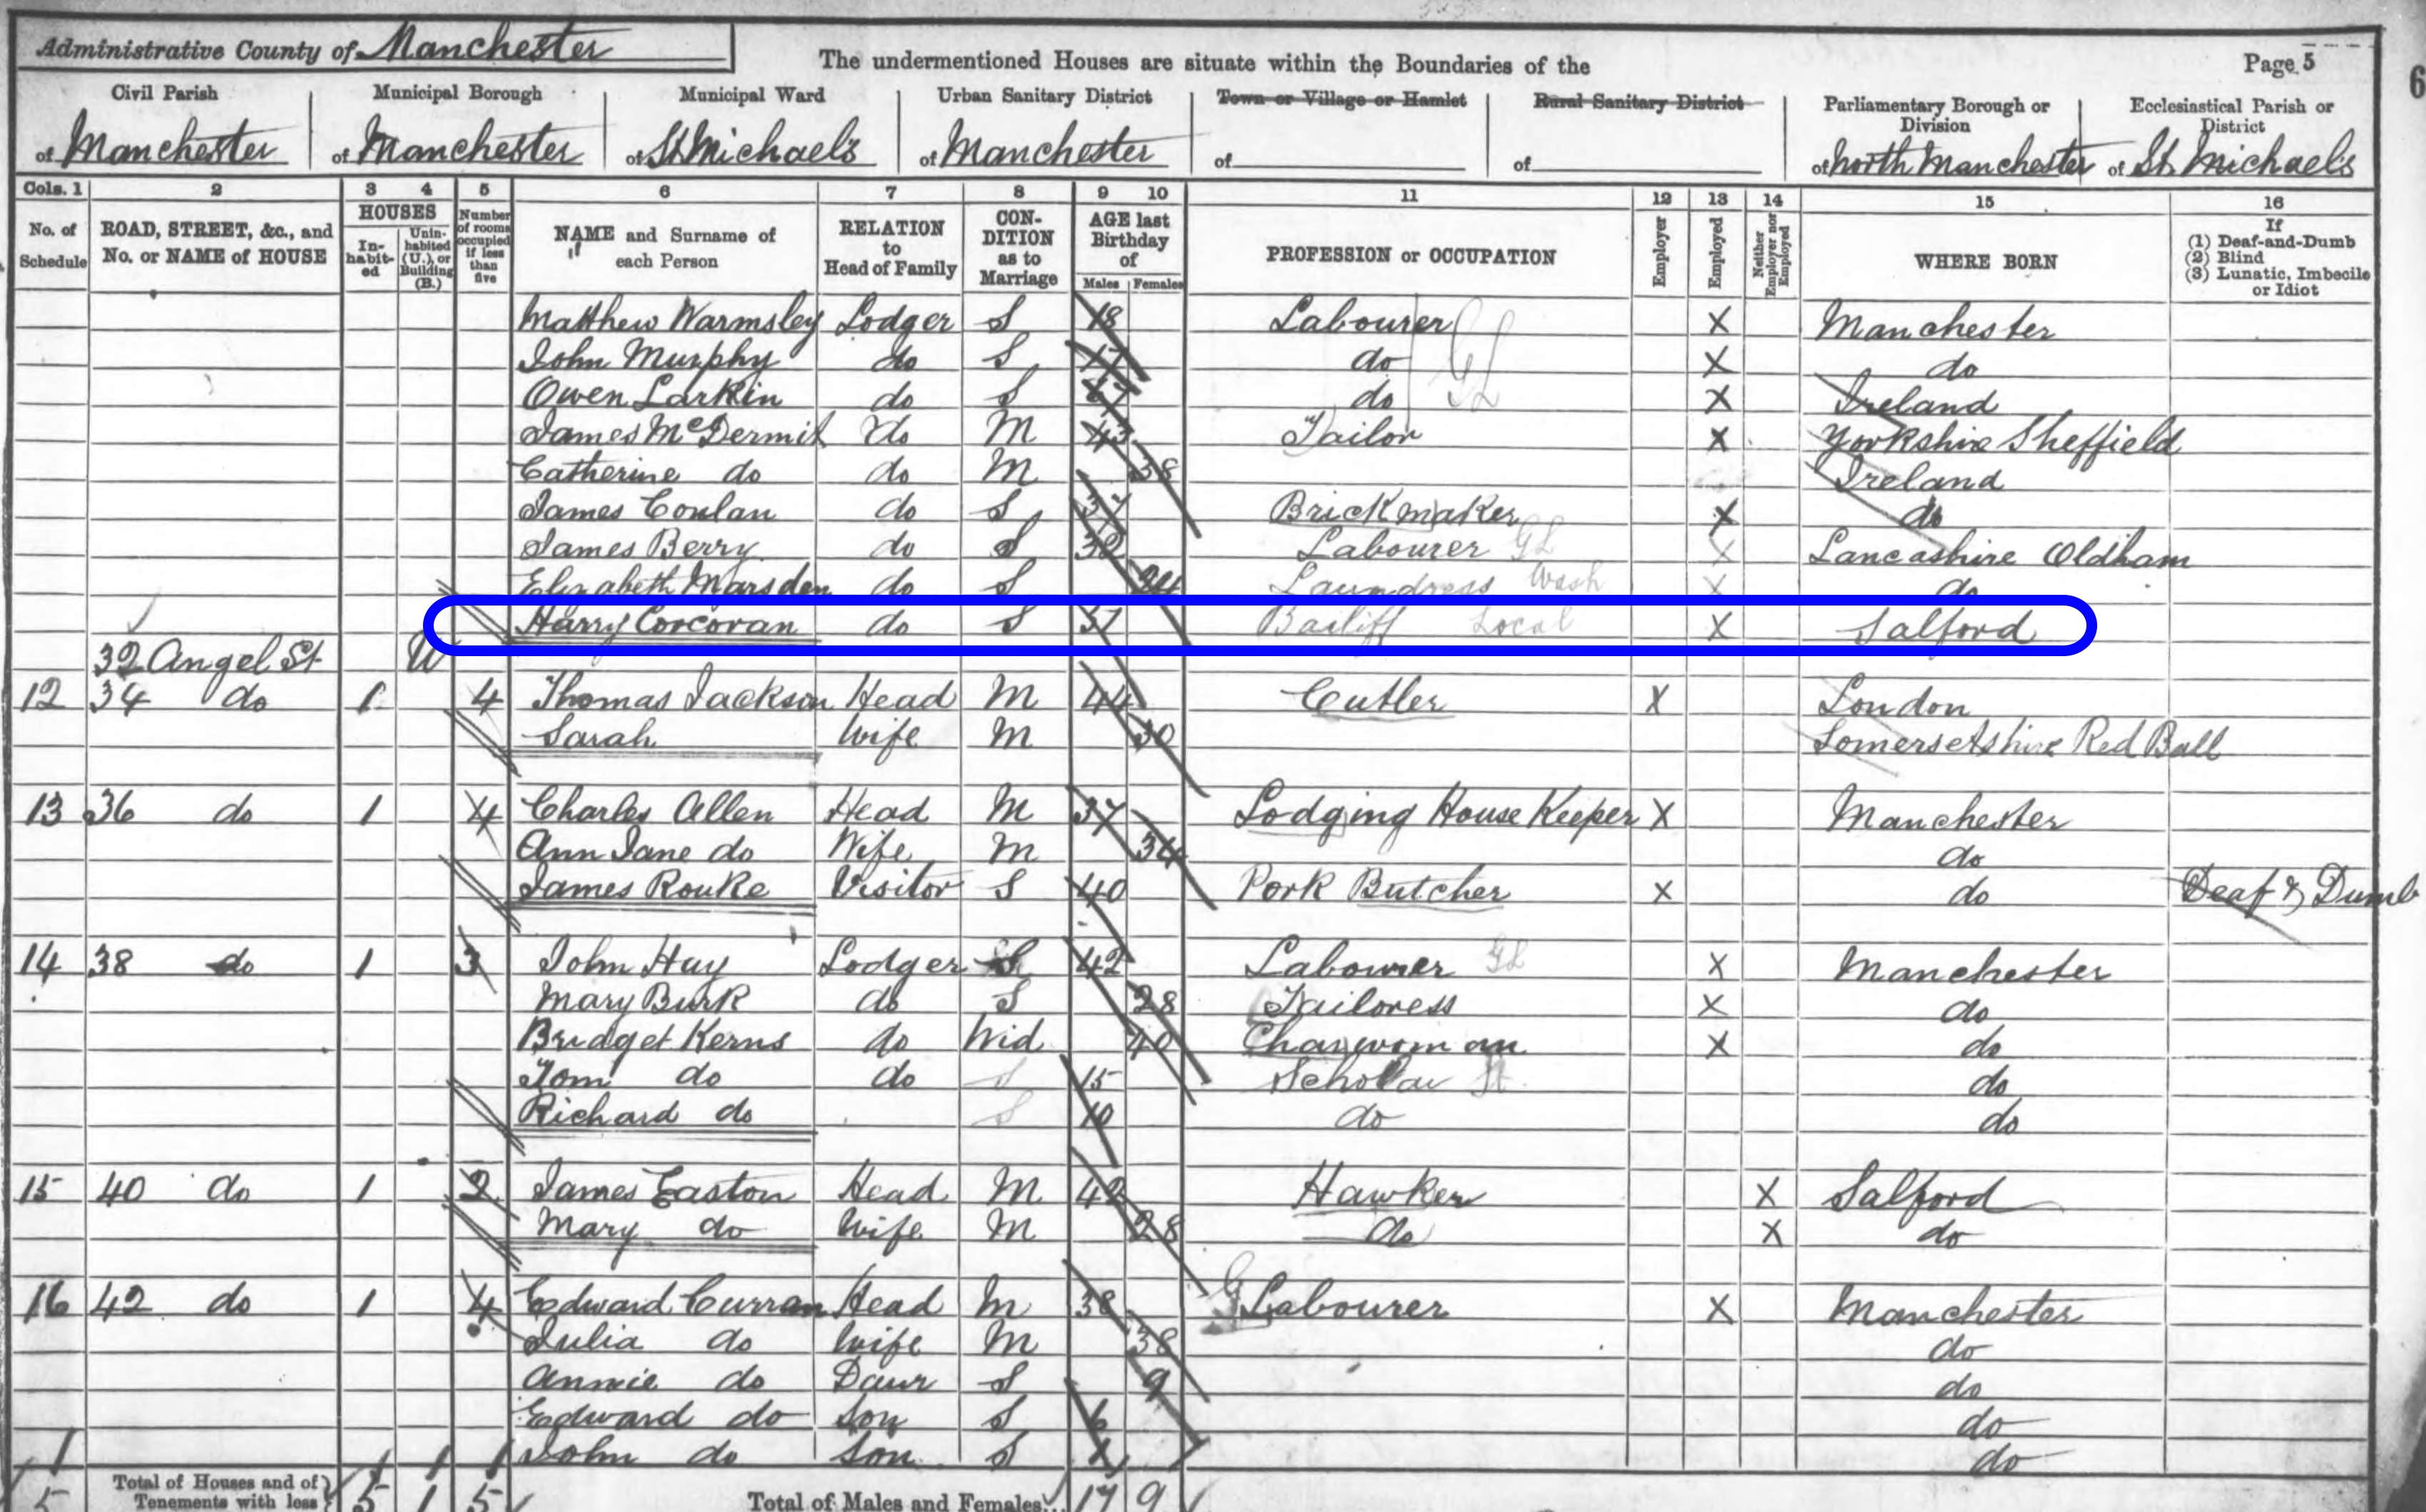 Administrative County of Manchester
The undermentioned Houses are situate within the Boundaries of the
Page 5
6
Civil Parish Municipal Borough Municipal Ward Urban Sanitary District Town or Village or Hamlet Rural Sanitary District Parliamentary Borough or Division Ecclesiastical Parish or District
of Manchester of Manchester of St Michael's of Manchester of of of North Manchester of St. Michael's
Cols. 1 2 3 4 5 6 7 8 9 10 11 12 13 14 15 16
No. of Schedule
ROAD, STREET, &c., and No. or NAME of HOUSE
HOUSES
In-habit-ed
Unin-habited (U.), or Building (B.)
Number of rooms occupied if less than five
NAME and Surname of each Person
RELATION to Head of Family
CON-DITION as to Marriage
AGE last Birthday of
Males Females
PROFESSION or OCCUPATION
Employer
Employed
Neither Employer nor Employed
WHERE BORN
If
(1) Deaf-and-Dumb
(2) Blind
(3) Lunatic, Imbecile or Idiot
Matthew Warmsley Lodger S 18 Labourer GL X Manchester
John Murphy do S 17 do X do
Owen Larkin do S do X Ireland
James McDermit do M 43 Tailor X Yorkshire Sheffield
Catherine do do M 38 Ireland
James Conlan do S 37 Brickmaker X do
James Berry do S 38 Labourer GL X Lancashire Oldham
Elizabeth Marsden do S 24 Laundress Wash X do
Harry Corcoran do S 37 Bailiff Local X Salford
32 Angel St U
12 34 do 1 4 Thomas Jackson Head M 44 Cutler X London
Sarah Wife M 30 Somersetshire Red Ball
13 36 do 1 4 Charles Allen Head M 37 Lodging House Keeper X Manchester
Ann Jane do Wife M 34 do
James Rouke Visitor S 40 Pork Butcher X do Deaf & Dumb
14 38 do 1 3 John Hay Lodger S 42 Labourer GL X Manchester
Mary Burk do S 28 Tailoress X do
Bridget Kerns do Wid 40 Charwoman X do
Tom do do S 15 Scholar do
Richard do S 10 do do
15 40 do 1 2 James Easton Head M 42 Hawker X Salford
Mary do Wife M 28 do X do
16 42 do 1 4 Edward Curran Head M 38 G Labourer X Manchester
Julia do Wife M 38 do
Annie do Daur S 9 do
Edward do Son S 6 do
John do Son S do
Total of Houses and of Tenements with less 5 1 5 Total of Males and Females... 17 9